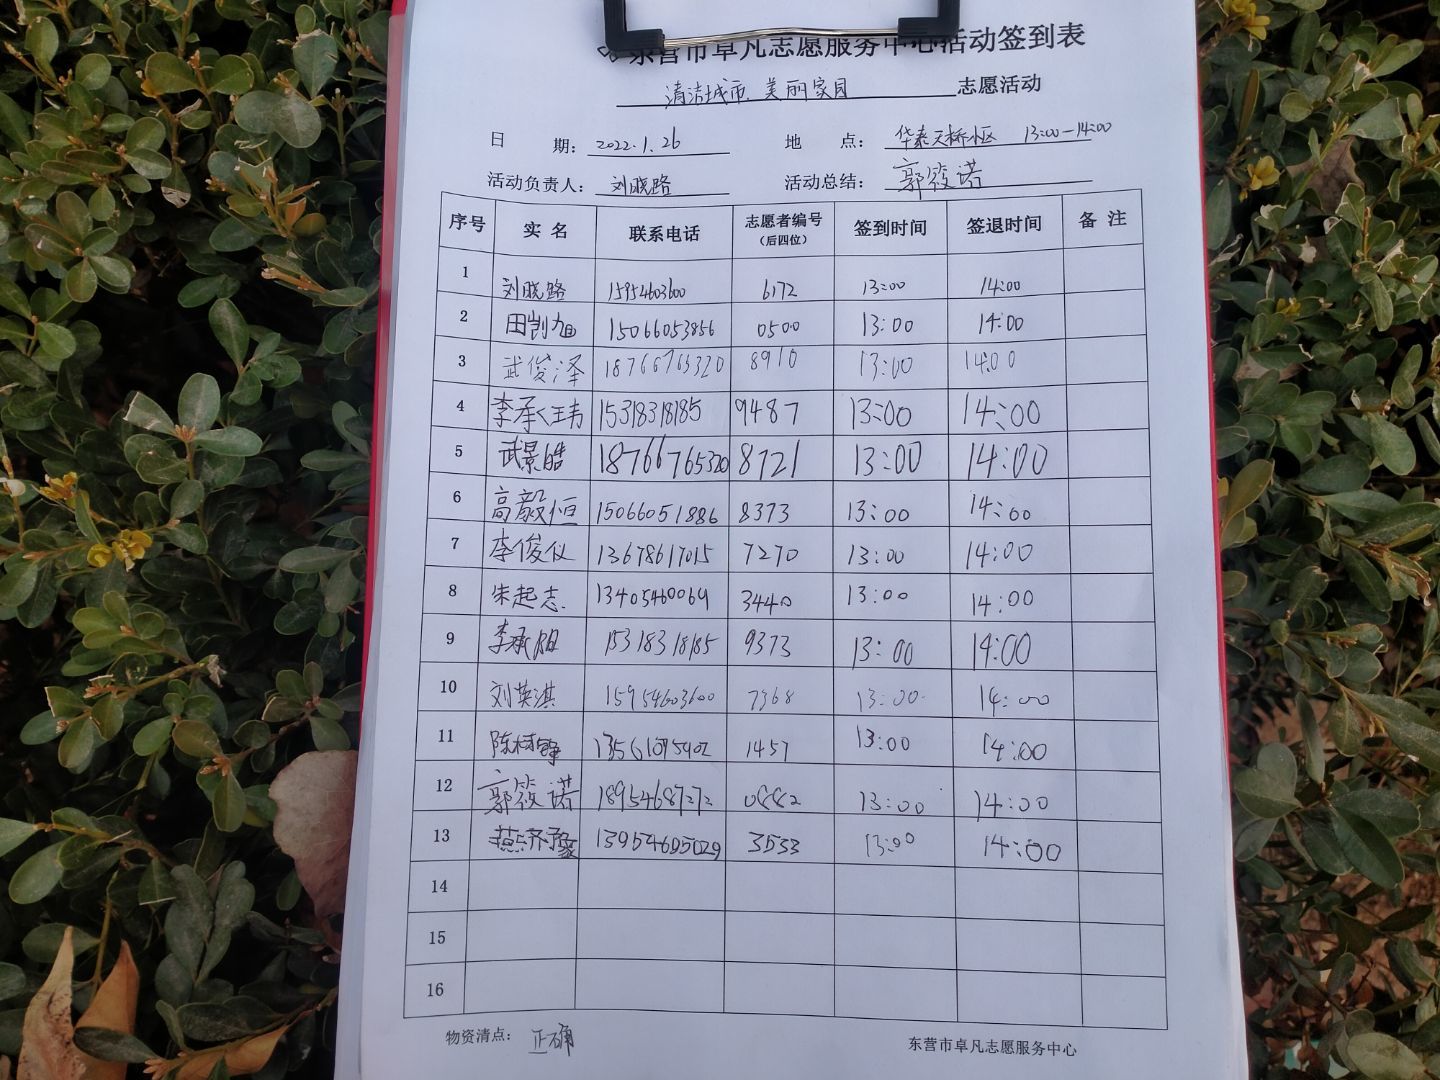 东营市卓凡志愿服务中心活动签到表
清洁城市、美丽家园 志愿活动
日 期： 2022.1.26 地 点： 华泰天桥小区 13:00-14:00
活动负责人： 刘晓路 活动总结： 郭筱诺
序号 实 名 联系电话 志愿者编号 签到时间 签退时间 备 注
（后四位）
1 刘晓路 15954603600 6172 13:00 14:00
2 15066053856 0500 13:00 14:00
3 武俊泽 18766765320 8910 13:00 14:00
4 李承玮 15318318185 9487 13:00 14:00
5 武景皓 18766765320 8721 13:00 14:00
6 高毅恒 15066051886 8373 13:00 14:00
7 李俊仪 13678617015 7270 13:00 14:00
8 朱起志 13405460069 3440 13:00 14:00
9 15318318185 9373 13:00 14:00
10 刘英淇 15954603600 7368 13:00 14:00
11 13561095402 1457 13:00 14:00
12 郭筱诺 18954687272 0882 13:00 14:00
13 燕齐豫 13954605029 3533 13:00 14:00
14
15
16
物资清点： 正确 东营市卓凡志愿服务中心